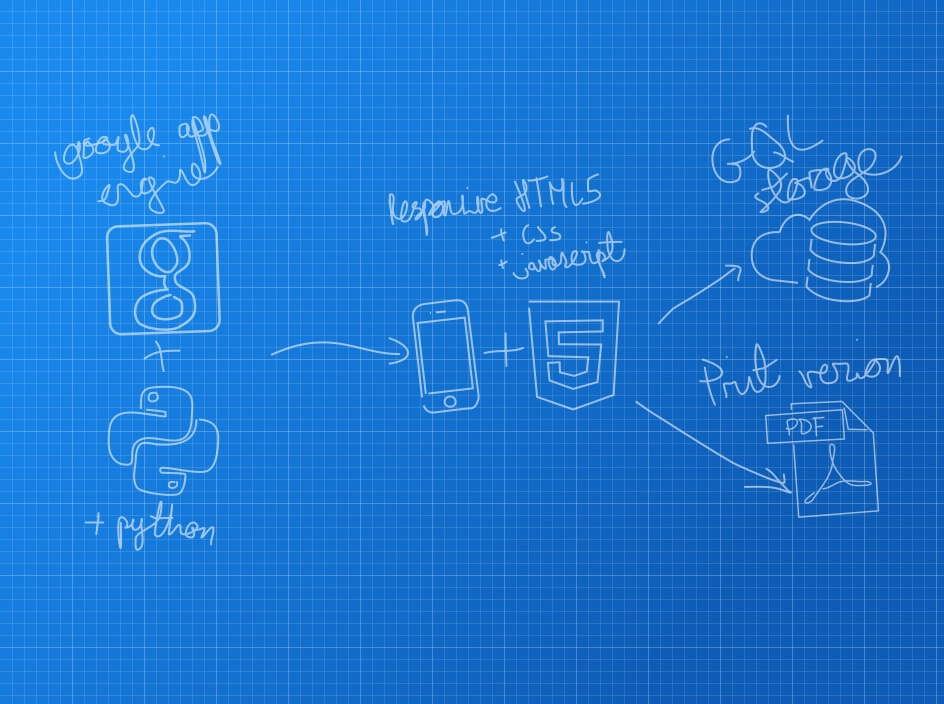 google app
engine
+
+ python
Responsive HTML5
+ CSS
+ javascript
+
5
GQL
storage
Print version
PDF